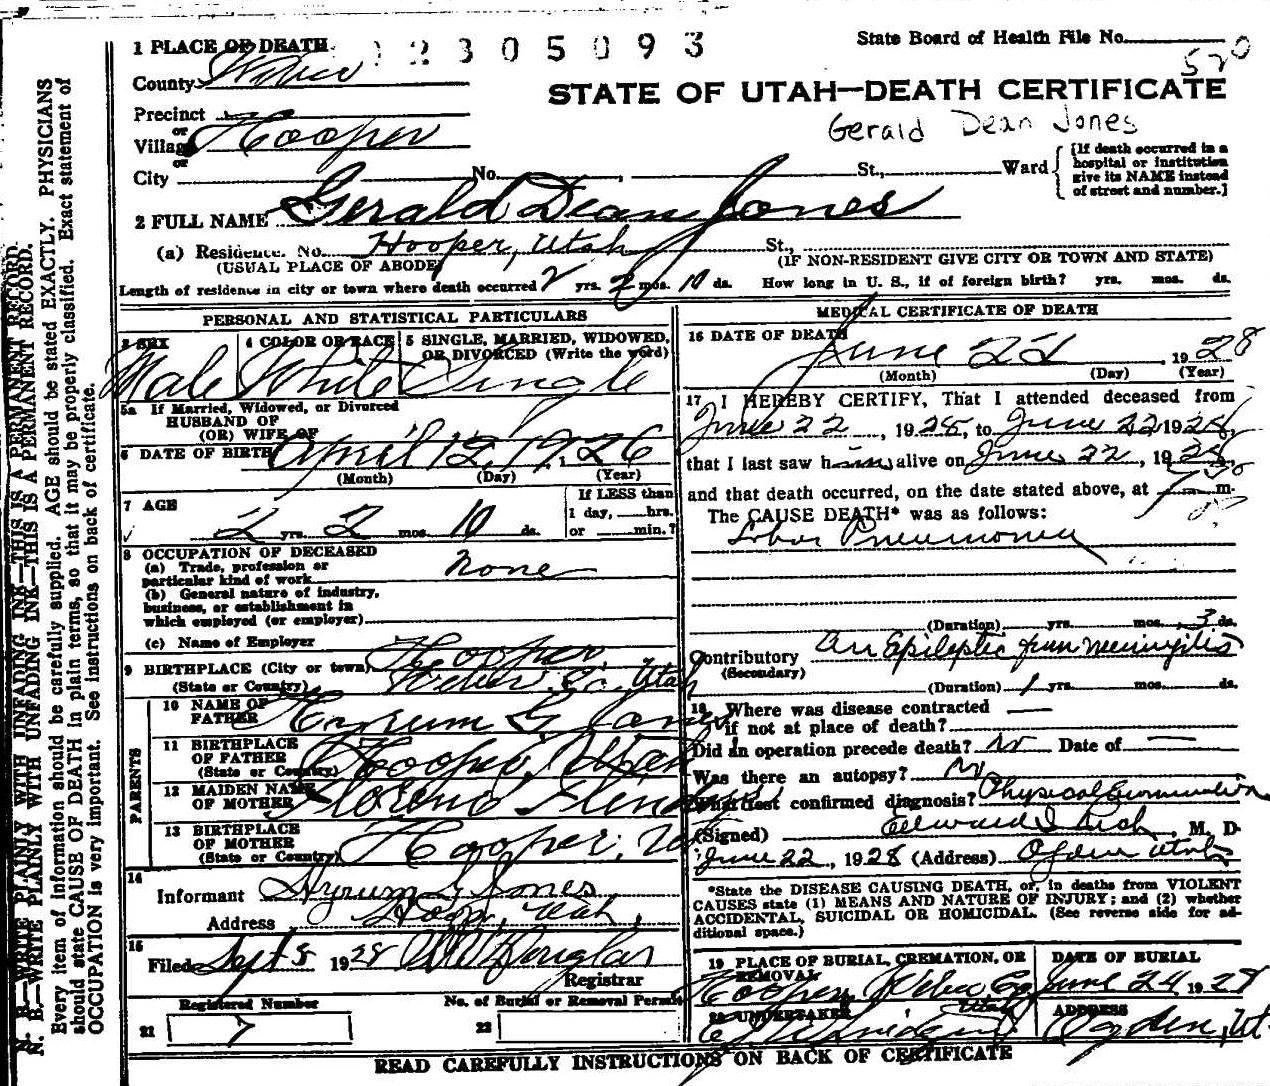 1 PLACE OF DEATH
12305093
State Board of Health File No.
520
County Weber
STATE OF UTAH—DEATH CERTIFICATE
Gerald Dean Jones
Precinct
or
Village Hooper
or
City No. , St., Ward
[If death occurred in a
hospital or institution
give its NAME instead
of street and number.]
2 FULL NAME Gerald Dean Jones
(a) Residence. No. Hooper, Utah St.,
(USUAL PLACE OF ABODE) (IF NON-RESIDENT GIVE CITY OR TOWN AND STATE)
Length of residence in city or town where death occurred 2 yrs. 2 mos. 10 ds. How long in U. S., if of foreign birth? yrs. mos. ds.
PERSONAL AND STATISTICAL PARTICULARS
3 SEX 4 COLOR OR RACE 5 SINGLE, MARRIED, WIDOWED,
OR DIVORCED (Write the word)
Male White Single
5a If Married, Widowed, or Divorced
HUSBAND OF
(OR) WIFE OF
6 DATE OF BIRTH April 12, 1926
(Month) (Day) (Year)
7 AGE
If LESS than
1 day, hrs.
or min.?
2 yrs. 2 mos. 10 ds.
8 OCCUPATION OF DECEASED
(a) Trade, profession or
particular kind of work None
(b) General nature of industry,
business, or establishment in
which employed (or employer)
(c) Name of Employer
9 BIRTHPLACE (City or town) Hooper
(State or Country) Weber Co. Utah
PARENTS
10 NAME OF
FATHER Hyrum G. Jones
11 BIRTHPLACE
OF FATHER
(State or Country) Hooper, Utah
12 MAIDEN NAME
OF MOTHER
13 BIRTHPLACE
OF MOTHER
(State or Country) Hooper,
14
Informant Hyrum G Jones
Address Hooper, Utah,
15
Filed Sept 8 1928 Douglas
Registrar
Registered Number No. of Burial or Removal Permit
21 7 22
MEDICAL CERTIFICATE OF DEATH
16 DATE OF DEATH
June 22, 1928
(Month) (Day) (Year)
17 I HEREBY CERTIFY, That I attended deceased from
June 22, 1928, to June 22 1928,
that I last saw him alive on June 22, 1928,
and that death occurred, on the date stated above, at m.
The CAUSE DEATH* was as follows:
Lobar Pneumonia
(Duration) yrs. mos. 3 ds.
Contributory An Epileptic from meningitis
(Secondary)
(Duration) 1 yrs. mos. ds.
18 Where was disease contracted
if not at place of death?
Did an operation precede death? No Date of
Was there an autopsy? No
What test confirmed diagnosis? Physical Examination
(Signed) Edward I. Rich, M. D.
June 22, 1928 (Address) Ogden Utah
*State the DISEASE CAUSING DEATH, or, in deaths from VIOLENT
CAUSES state (1) MEANS AND NATURE OF INJURY; and (2) whether
ACCIDENTAL, SUICIDAL OR HOMICIDAL. (See reverse side for ad-
ditional space.)
19 PLACE OF BURIAL, CREMATION, OR
REMOVAL
DATE OF BURIAL
Hooper, Weber Co. Utah June 24 1928
20 UNDERTAKER ADDRESS
Ogden, Ut.
READ CAREFULLY INSTRUCTIONS ON BACK OF CERTIFICATE
N. B.—WRITE PLAINLY WITH UNFADING INK—THIS IS A PERMANENT RECORD.
N. B.—WRITE PLAINLY WITH UNFADING INK—THIS IS A PERMANENT RECORD.
Every item of information should be carefully supplied. AGE should be stated EXACTLY. PHYSICIANS
should state CAUSE OF DEATH in plain terms, so that it may be properly classified. Exact statement of
OCCUPATION is very important. See instructions on back of certificate.